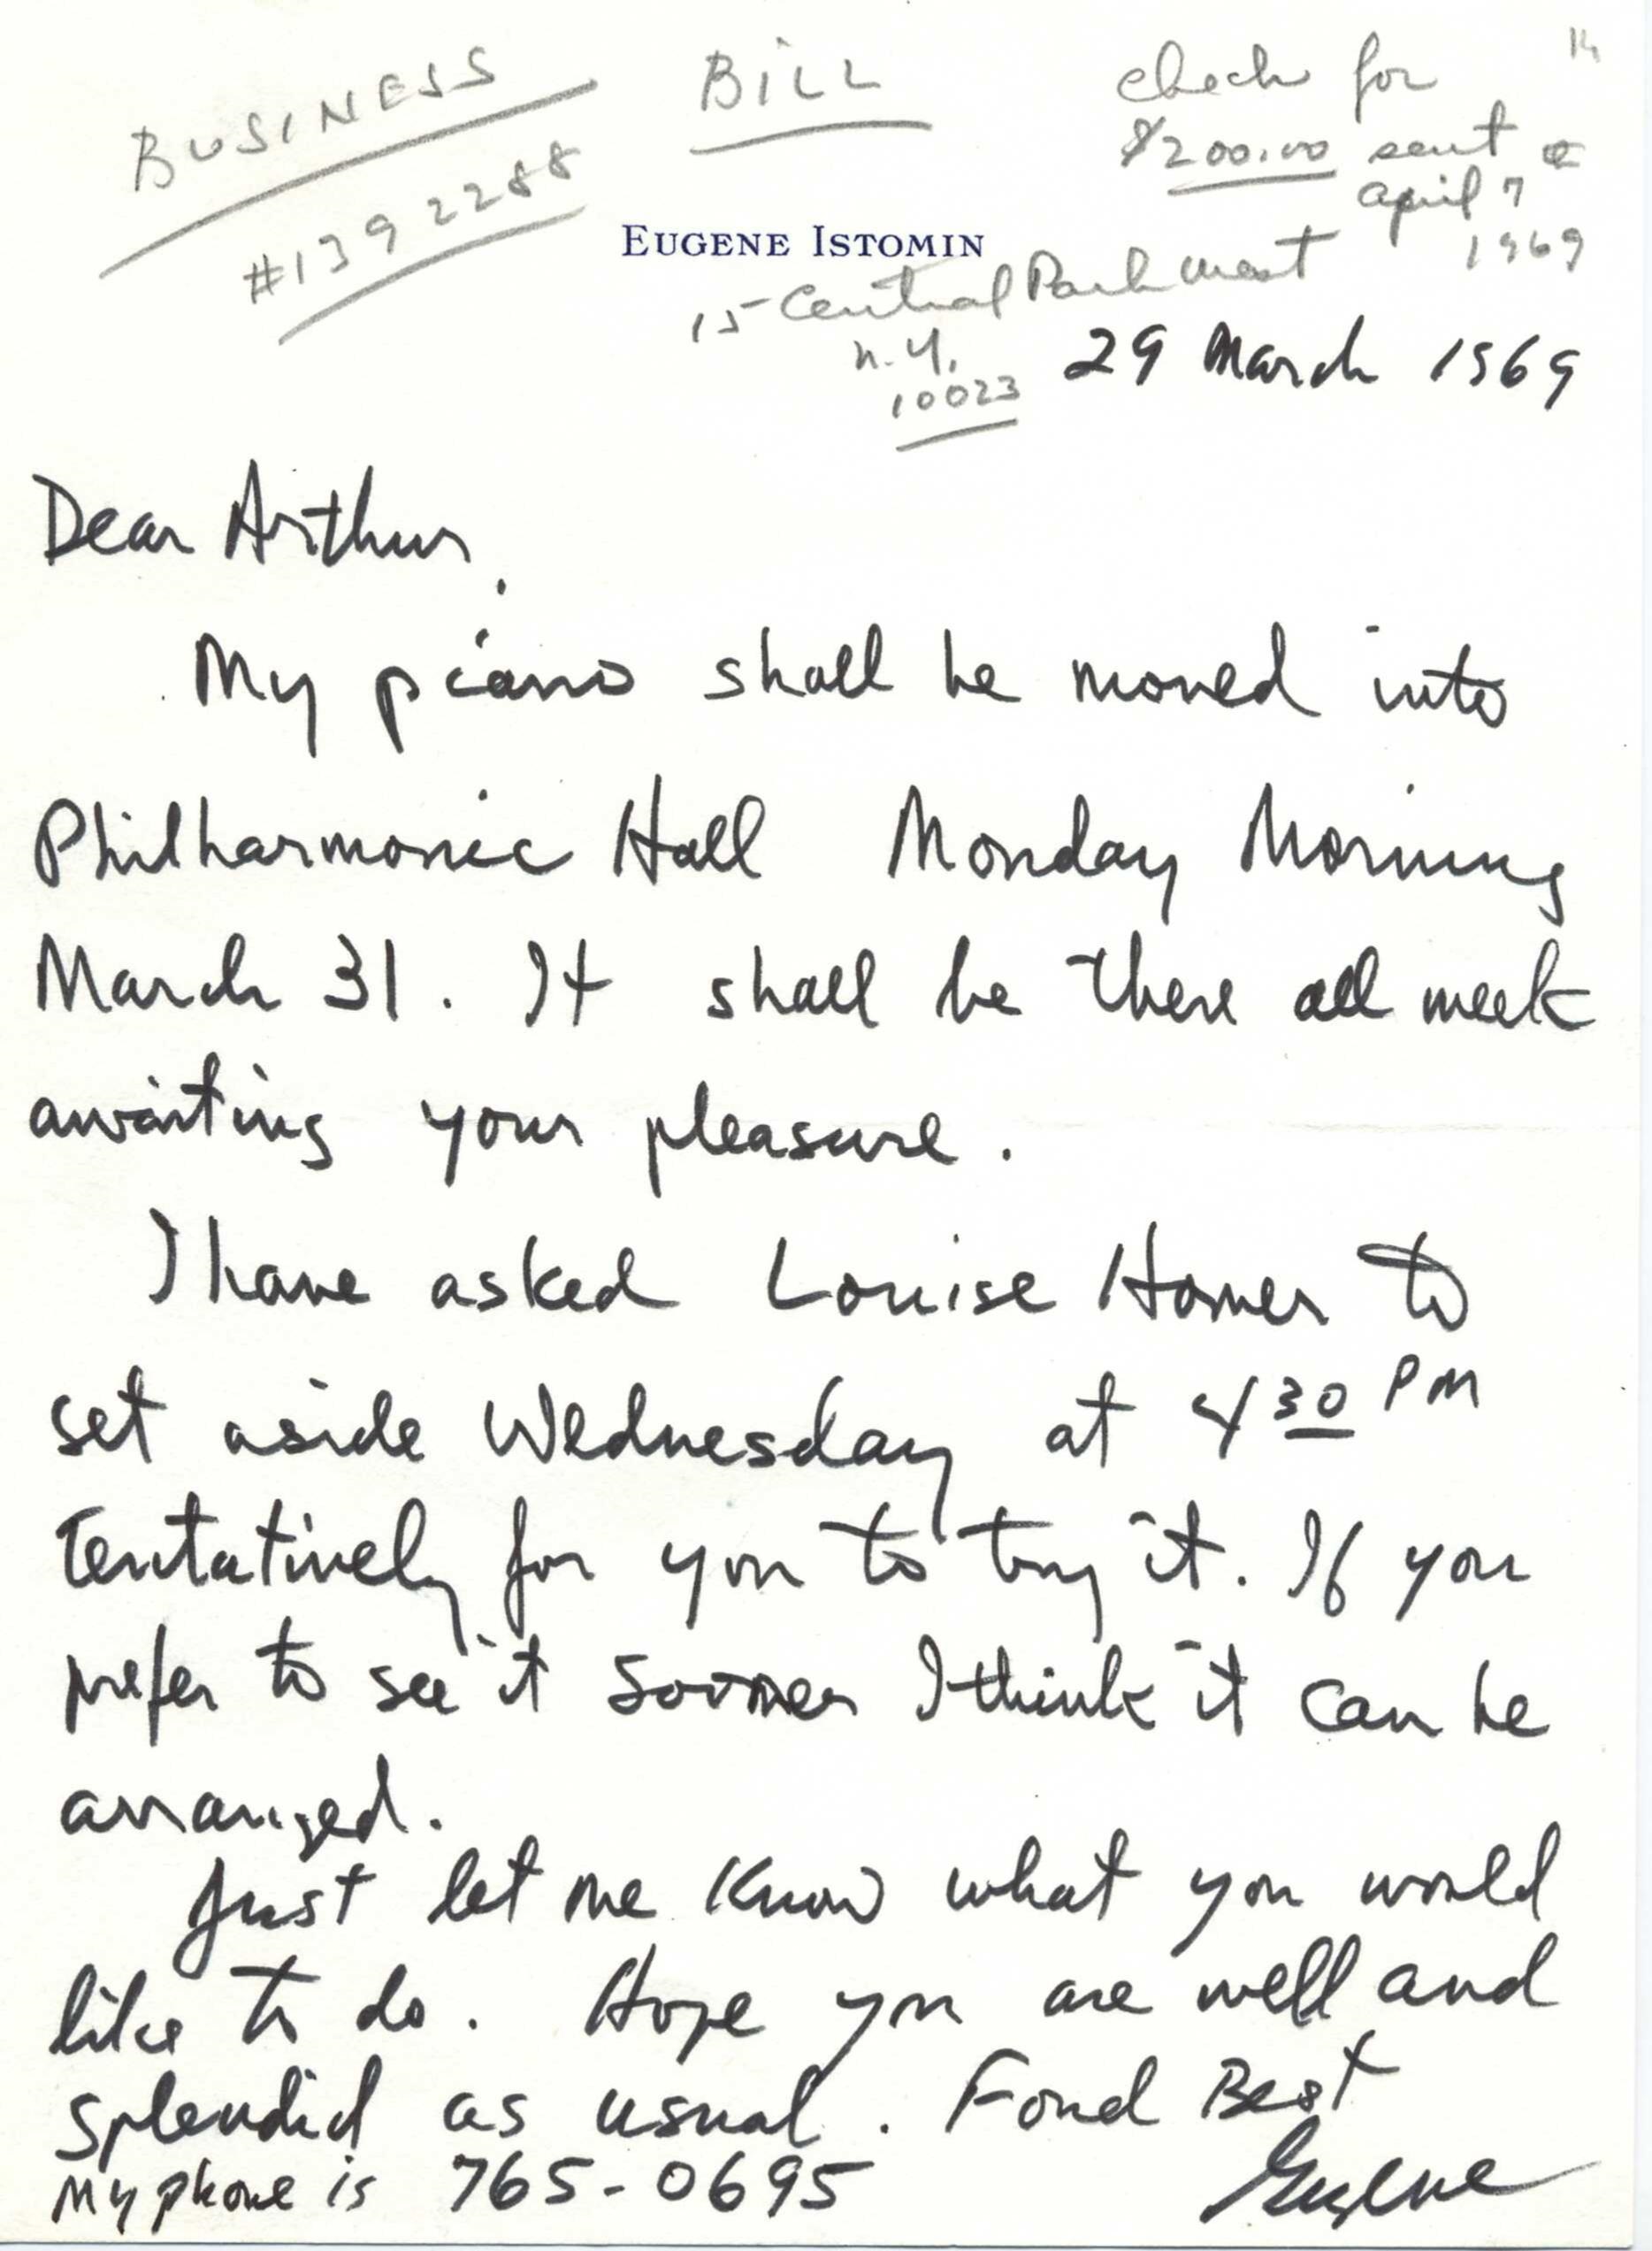 BUSINESS
#1392288
BILL
check for
$200.00 sent
april 7
1969
EUGENE ISTOMIN
15 Central Park West
N.Y.
10023
29 March 1969
Dear Arthur,
My piano shall be moved into
Philharmonic Hall Monday Morning
March 31. It shall be there all week
awaiting your pleasure.
I have asked Louise Homer to
set aside Wednesday at 4 30 PM
Tentatively for you to try it. If you
prefer to see it sooner I think it can be
arranged.
Just let me know what you would
like to do. Hope you are well and
splendid as usual. Fond Best
My phone is 765-0695
Eugene